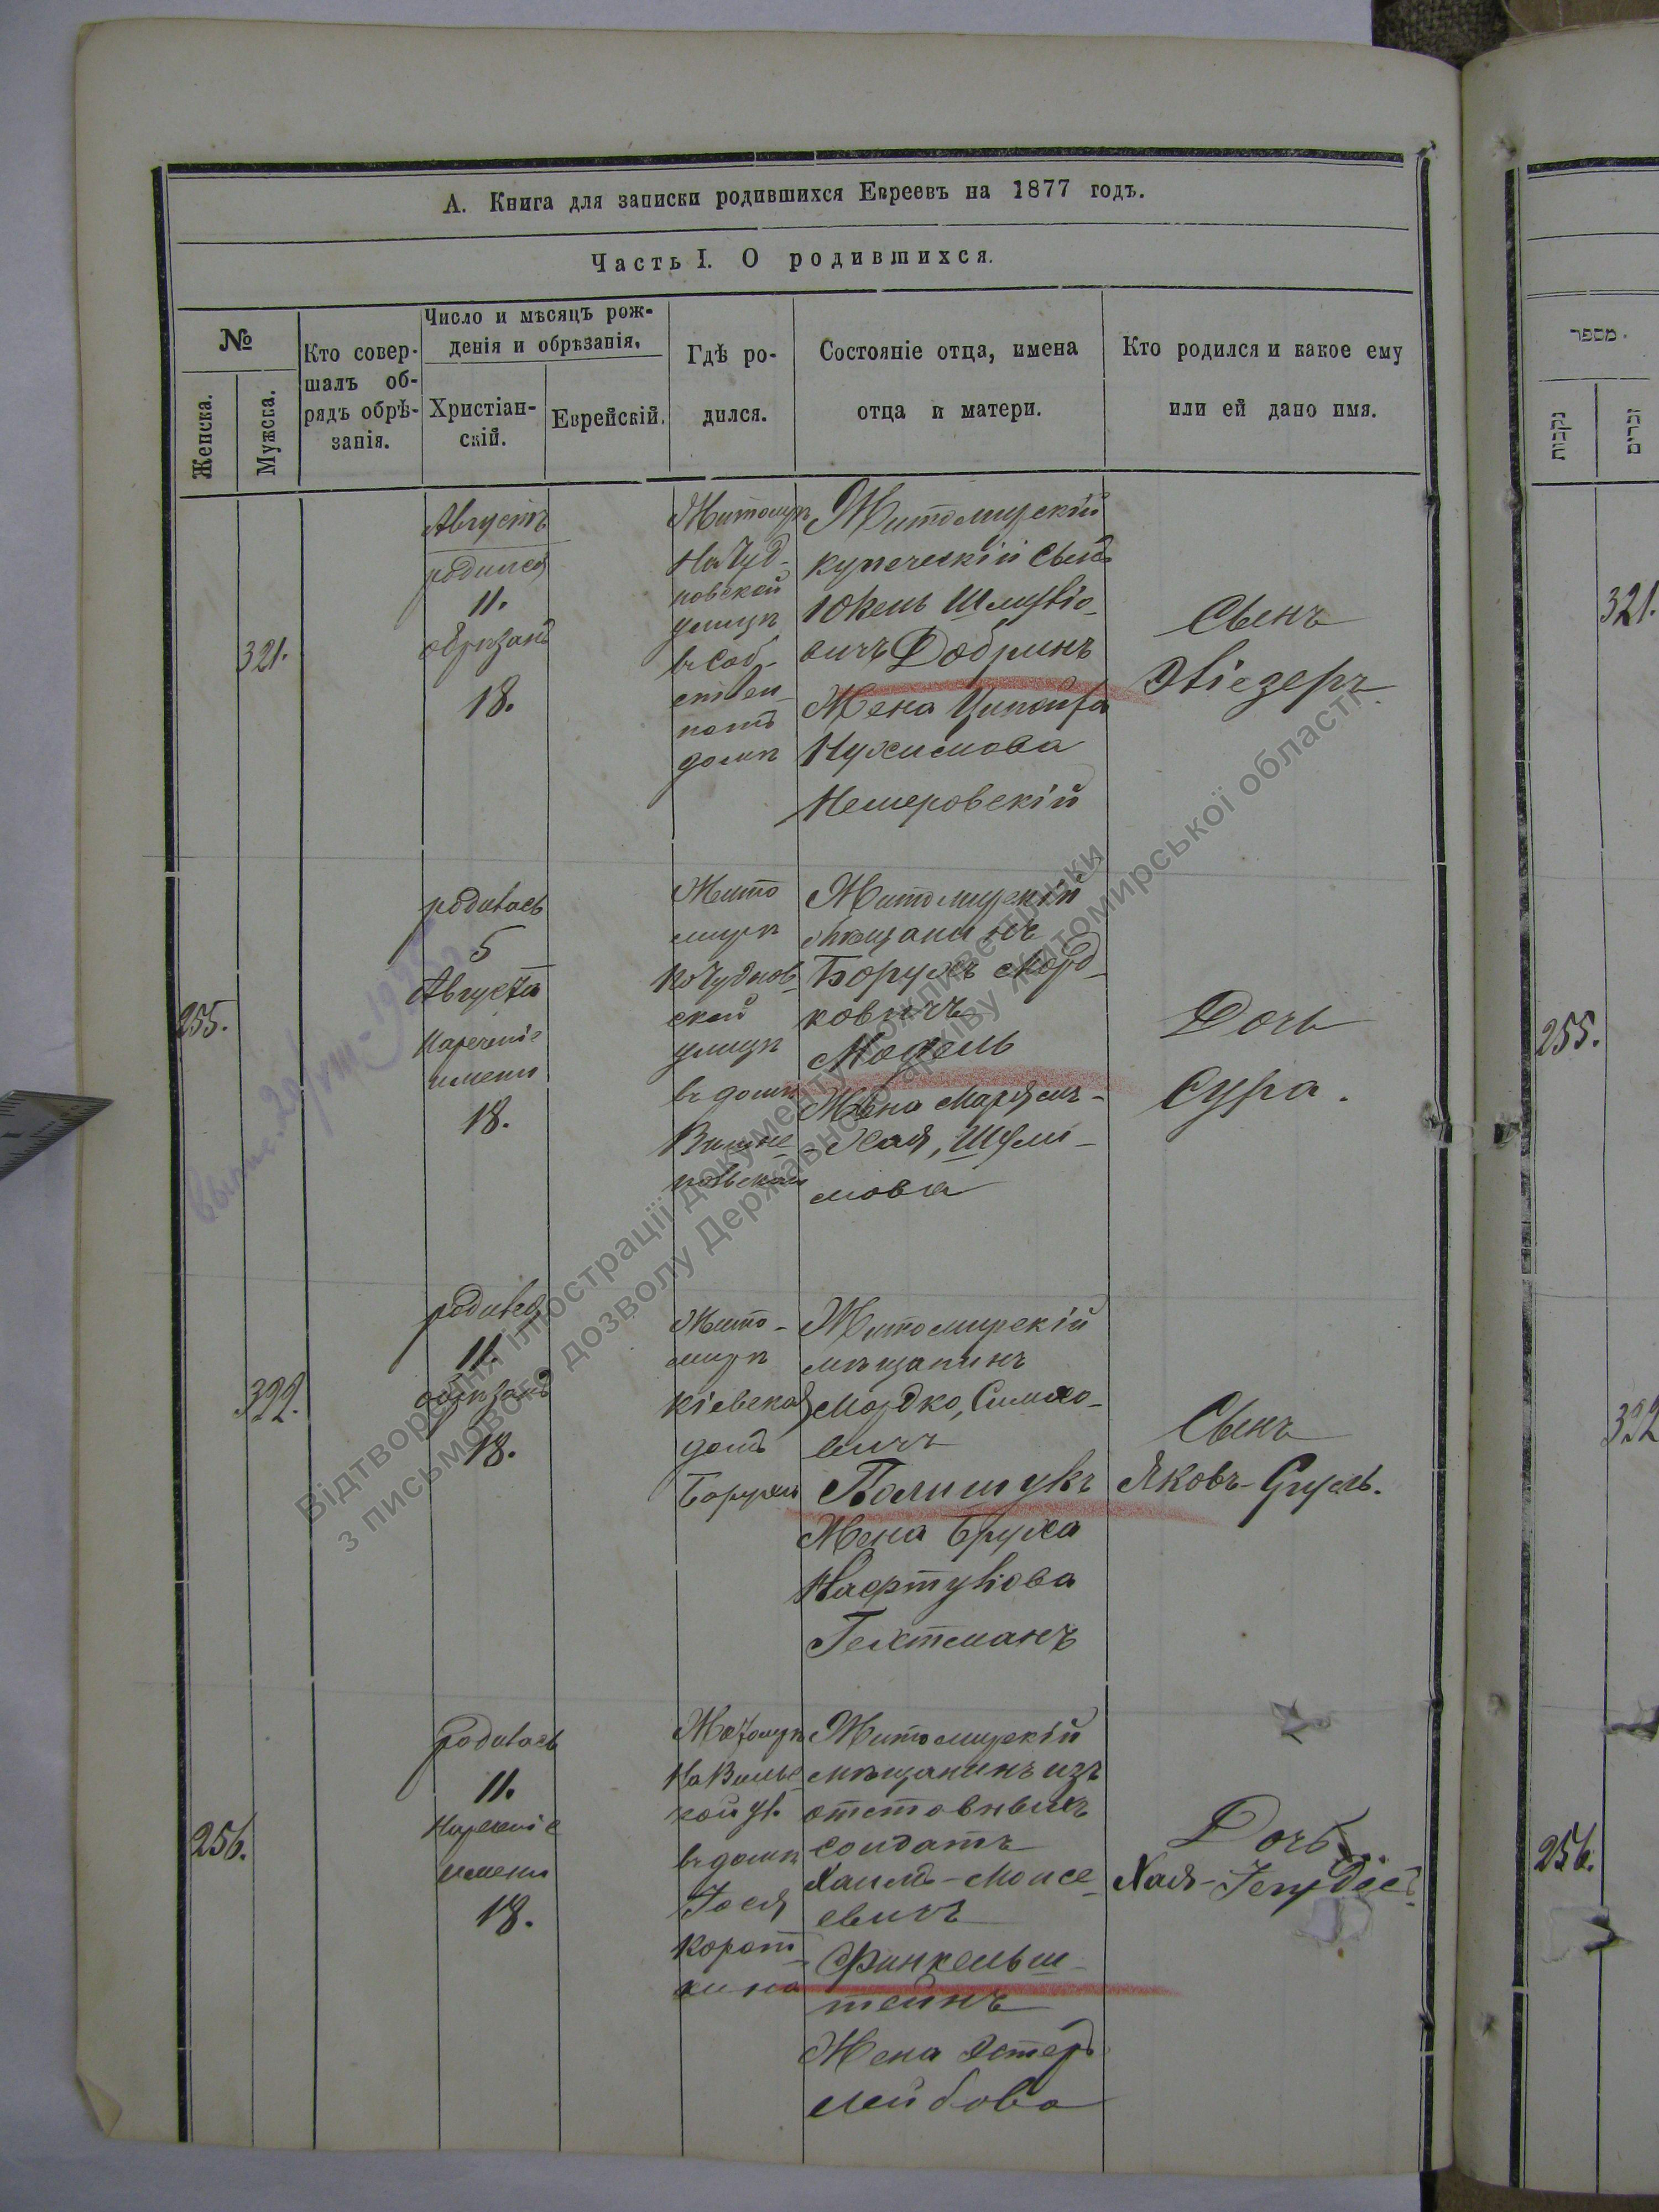 А. Книга для записки родившихся Евреевъ на 1877 годъ.
Часть I. О родившихся.
№
Женска.
Мужска.
Кто совер-
шалъ об-
рядъ обрѣ-
занія.
Число и мѣсяцъ рож-
денія и обрѣзанія.
Христіан-
скій.
Еврейскій.
Гдѣ ро-
дился.
Состояніе отца, имена
отца и матери.
Кто родился и какое ему
или ей дано имя.
321.
Августъ
родился
11.
обрѣзанъ
18.
Житомиръ
На Чуд-
новской
улицѣ
въ соб-
ствен-
номъ
домѣ
Житомирскій
купеческій сынъ
Шмуліо-
вичъ Добринъ
Жена
Нухимова
Немеровскій
Сынъ
Эліезеръ.
255.
родилась
5
Августа
Нареченіе
имени
18.
Жито
миръ
По Чуднов-
ской
улицѣ
въ домѣ
Житомирскій
мѣщанинъ
Борухъ Морд-
ковичъ
Модель
Жена Марьямъ-
Хая,
мова
Дочь
Сура.
322.
родился
11.
обрѣзанъ
18.
Жито-
миръ
Кіевская
домъ
Боруха
Житомирскій
мѣщанинъ
Мордко, Симхо-
вичъ
Полишукъ
Жена Бруха
Нафтуліова
Гехтманъ
Сынъ
Яковъ-Сруль.
256.
родилась
11.
Нареченіе
имени
18.
Житомиръ
На Вильс-
кой ул.
въ домѣ
Іося
Корот-
кина
Житомирскій
мѣщанинъ изъ
отставныхъ
солдатъ
Хаимъ-Моисе-
евичъ
Финкельш-
тейнъ
Жена Эстеръ
Лейбова
Дочь
Хая-
מספר
נקבות
זכרים
321.
255.
322
256.
Відтворення ілюстрації документу можливе тільки
з письмового дозволу Державного архіву Житомирської області.